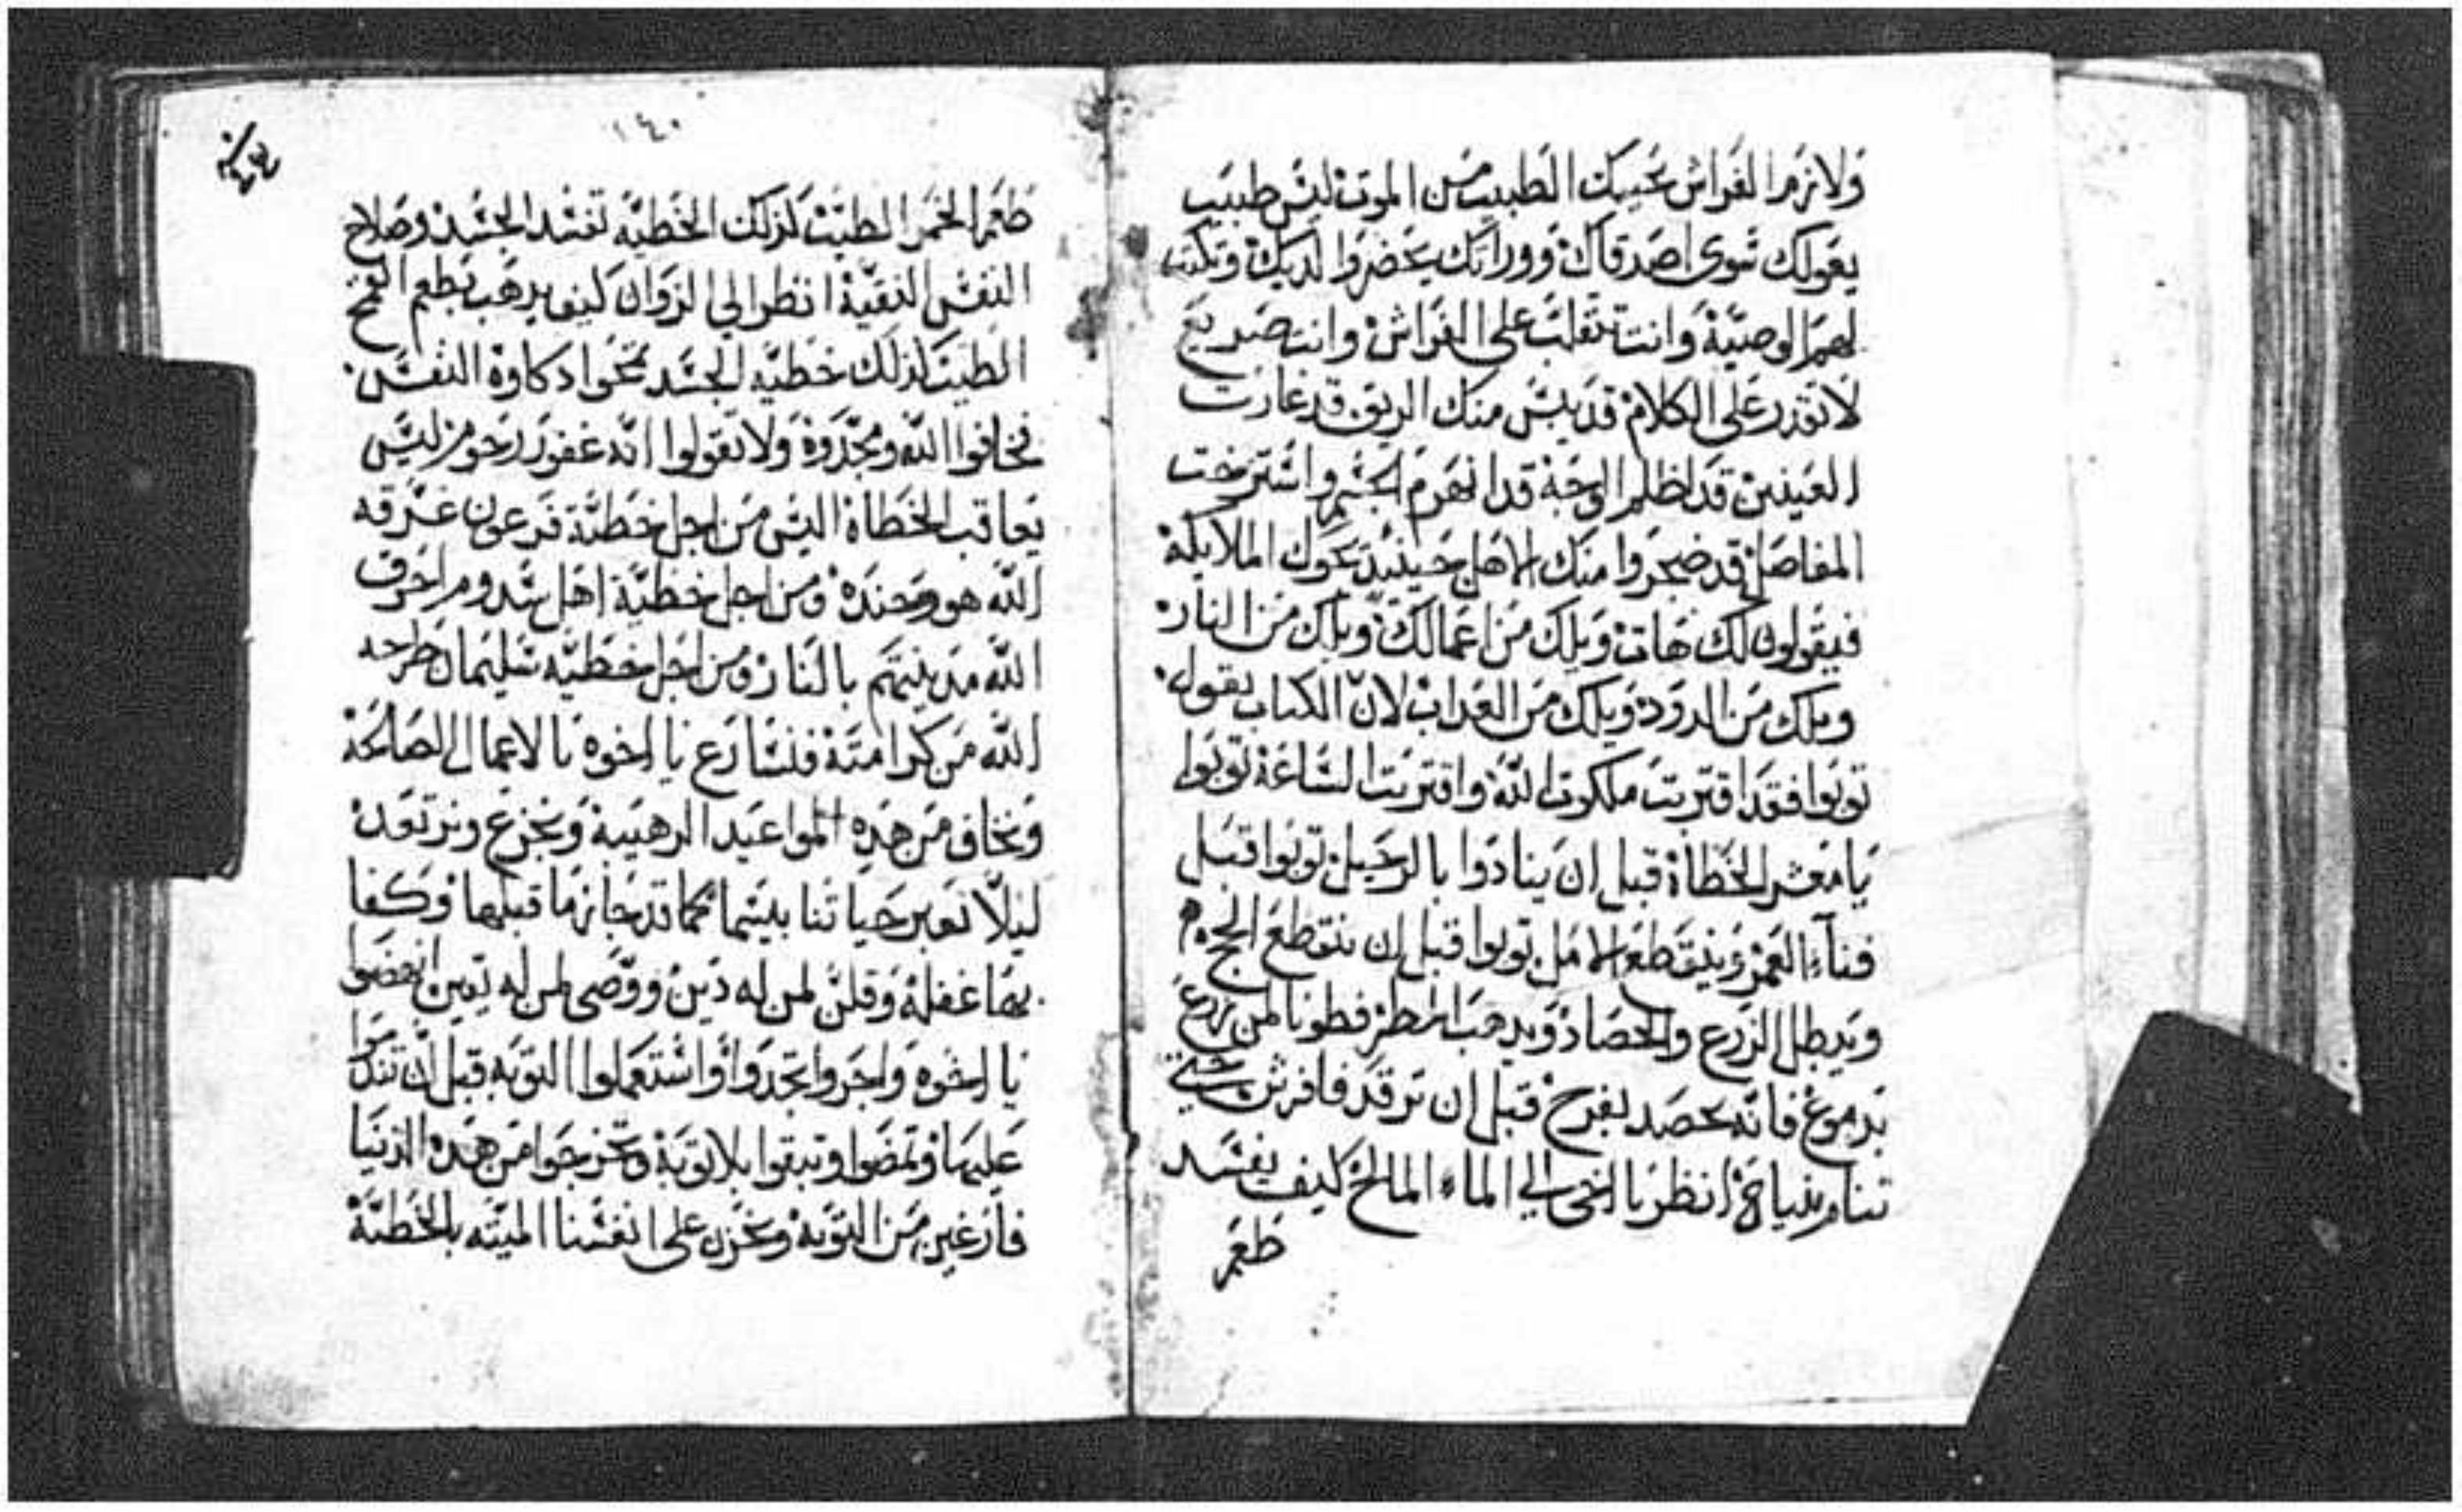 ولازم الفراش يجيك الطبيب من الموت ليس طبيب
يقولك سوى اصدقاك وورثاتك يحضروا لديك وتكتب
لهم الوصية وانت تتقلب على الفراش وانت صريع
لا تقدر على الكلام قد يبس منك الريق قد غارت
العينين قد اظلم الوجه قد انهزم الجسم واسترخت
المفاصل قد ضجروا منك الاهل حينيد الملايكة
فيقولون لك هات ويلك من اعمالك ويلك من النار
ويلك من الدود ويلك من العداب لان الكتاب يقول
توبوا فقد اقتربت ملكوت الله واقتربت الساعة توبوا
يا معشر الخطاة قبل ان ينادوا بالرحيل توبوا قبل
فناء العمر وينقطع الامل توبوا قبل ان تنقطع
ويبطل الزرع والحصاد ويدهب المطر فطوبا لمن زرع
بدموع فانه يحصد بفرح قبل ان ترقد فافرش
تنام بنياح انظر يا اخي الي الماء المالح كيف يفسد
طعم
١٤٠
طعم الخمر الطيب كذلك الخطيه تفسد الجسد وصلاح
النفس النقية انظر الي الزوان كيف يدهب بطعم القمح
الطيب كذلك خطيه الجسد تمحوا دكاوة النفس
فخافوا الله ومجدوه ولا تقولوا انه غفور رحوم ليس
يعاقب الخطاة اليس من اجل خطية فرعون غرقه
الله هو وجنده ومن اجل خطية اهل سدوم احرق
الله مدينتهم بالنار ومن اجل خطيه سليمان طرحه
الله من كرامته فنسارع يا اخوه بالاعمال الصالحة
ونخاف من هده المواعيد الرهيبة ونجزع ونرتعد
ليلا تعبر حياتنا بينما كما قد جاز ما قبلها وكفا
بها غفلة وقلن لمن له دين ووصى لمن له انهضوا
يا اخوه واجروا وتجدوا واستعملوا التوبه قبل ان تندموا
عليها وتمضوا وتبقوا بلا توبة وتخرجوا من هده الدنيا
فارغين من التوبة ونحزن على انفسنا الميته بالخطية